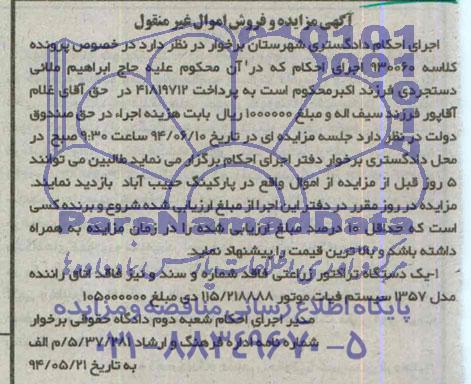 آگهی مزایده و فروش اموال غیر منقول
اجرای احکام دادگستری شهرستان برخوار در نظر دارد در خصوص پرونده
کلاسه ۹۳۰۰۶۰ اجرای احکام که در آن محکوم علیه حاج ابراهیم ملائی
دستجردی فرزند اکبر محکوم است به پرداخت ۴۱۸۱۹۷۱۲ در حق آقای غلام
آقاپور فرزند سیف اله و مبلغ ۱۰۰۰۰۰۰ ریال بابت هزینه اجراء در حق صندوق
دولت در نظر دارد جلسه مزایده ای در تاریخ ۹۴/۰۶/۱۰ ساعت ۹:۳۰ صبح در
محل دادگستری برخوار دفتر اجرای احکام برگزار می نماید طالبین می توانند
۵ روز قبل از مزایده از اموال واقع در پارکینگ حبیب آباد بازدید نمایند.
مزایده در روز مقرر در دفتر این اجرا از مبلغ ارزیابی شده شروع و برنده کسی
است که حداقل ۱۰ درصد مبلغ ارزیابی شده را در زمان مزایده به همراه
داشته باشد و بالاترین قیمت را پیشنهاد نماید.
۱-یک دستگاه تراکتور زراعتی فاقد شماره و سند و نیز فاقد اتاق راننده
مدل ۱۳۵۷ سیستم فیات موتور ۱۱۵/۲۱۸۸۸۸ دی مبلغ ۱۰۵۰۰۰۰۰۰
مدیر اجرای احکام شعبه دوم دادگاه حقوقی برخوار
شماره نامه اداره فرهنگ و ارشاد ۵/۳۲/۲۸۱/م الف
به تاریخ ۹۴/۰۵/۲۱
ParsNamadData
پایگاه اطلاع رسانی مناقصه و مزایده
۰۲۱-۸۸۳۴۹۶۷۰-۵